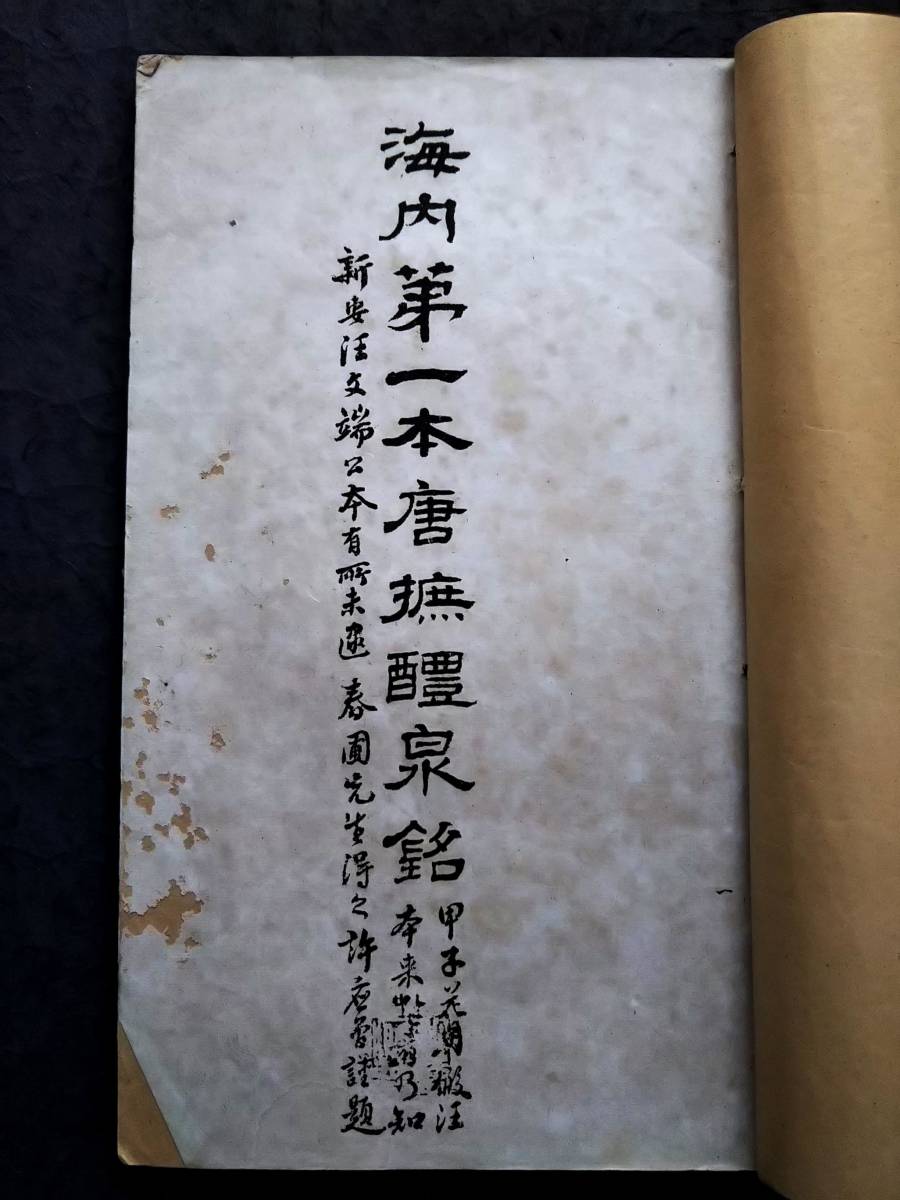 海内第一本唐摭醴泉銘
甲子花朝 汪
本来 乃知
新安汪文端公本有所未逮春圃先生得之許 謹題
一